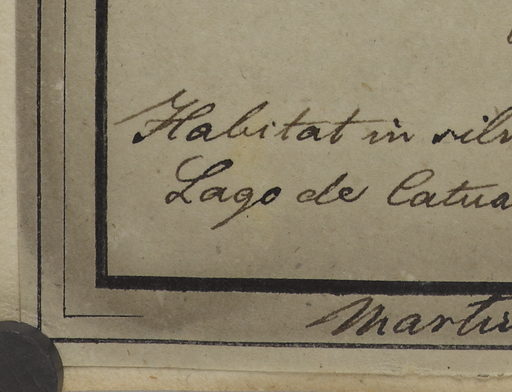 Habitat in silv
Lago de Catua
Martiu